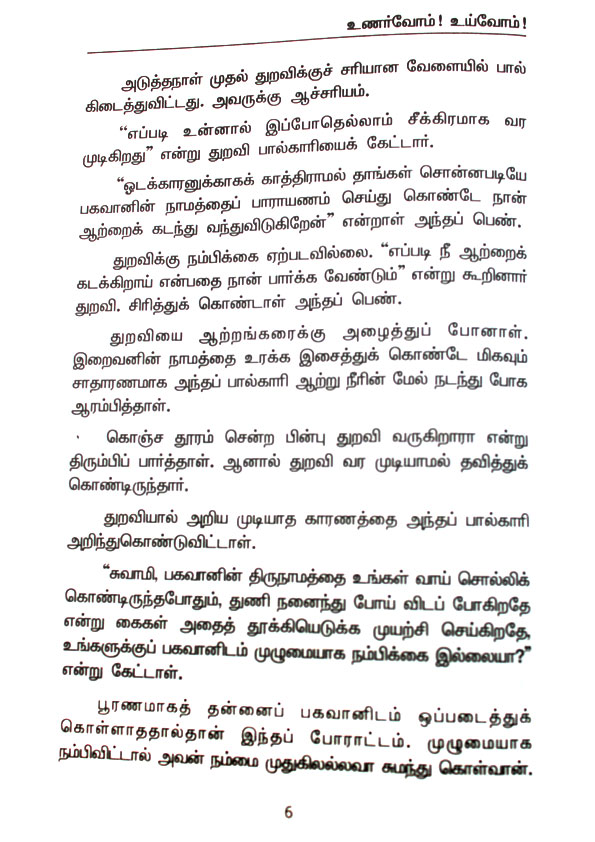 உணர்வோம்! உய்வோம்!
அடுத்தநாள் முதல் துறவிக்குச் சரியான வேளையில் பால்
கிடைத்துவிட்டது. அவருக்கு ஆச்சரியம்.
“எப்படி உன்னால் இப்போதெல்லாம் சீக்கிரமாக வர
முடிகிறது” என்று துறவி பால்காரியைக் கேட்டார்.
“ஓடக்காரனுக்காகக் காத்திராமல் தாங்கள் சொன்னபடியே
பகவானின் நாமத்தைப் பாராயணம் செய்து கொண்டே நான்
ஆற்றைக் கடந்து வந்துவிடுகிறேன்” என்றாள் அந்தப் பெண்.
துறவிக்கு நம்பிக்கை ஏற்படவில்லை. “எப்படி நீ ஆற்றைக்
கடக்கிறாய் என்பதை நான் பார்க்க வேண்டும்” என்று கூறினார்
துறவி. சிரித்துக் கொண்டாள் அந்தப் பெண்.
துறவியை ஆற்றங்கரைக்கு அழைத்துப் போனாள்.
இறைவனின் நாமத்தை உரக்க இசைத்துக் கொண்டே மிகவும்
சாதாரணமாக அந்தப் பால்காரி ஆற்று நீரின் மேல் நடந்து போக
ஆரம்பித்தாள்.
கொஞ்ச தூரம் சென்ற பின்பு துறவி வருகிறாரா என்று
திரும்பிப் பார்த்தாள். ஆனால் துறவி வர முடியாமல் தவித்துக்
கொண்டிருந்தார்.
துறவியால் அறிய முடியாத காரணத்தை அந்தப் பால்காரி
அறிந்துகொண்டுவிட்டாள்.
“சுவாமி, பகவானின் திருநாமத்தை உங்கள் வாய் சொல்லிக்
கொண்டிருந்தபோதும், துணி நனைந்து போய் விடப் போகிறதே
என்று கைகள் அதைத் தூக்கியெடுக்க முயற்சி செய்கிறதே,
உங்களுக்குப் பகவானிடம் முழுமையாக நம்பிக்கை இல்லையா?”
என்று கேட்டாள்.
பூரணமாகத் தன்னைப் பகவானிடம் ஒப்படைத்துக்
கொள்ளாததால்தான் இந்தப் போராட்டம். முழுமையாக
நம்பிவிட்டால் அவன் நம்மை முதுகிலல்லவா சுமந்து கொள்வான்.
6